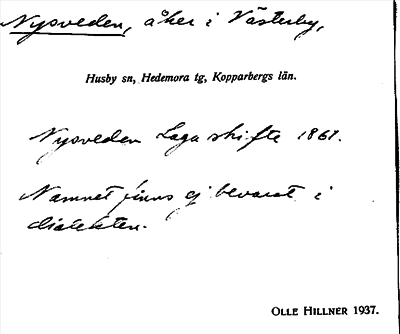 Nysveden, åker i Västerby,
Husby sn, Hedemora tg, Kopparbergs län.
Nysveden Laga skifte 1861.
Namnet finns ej bevarat i
dialekten.
OLLE HILLNER 1937.